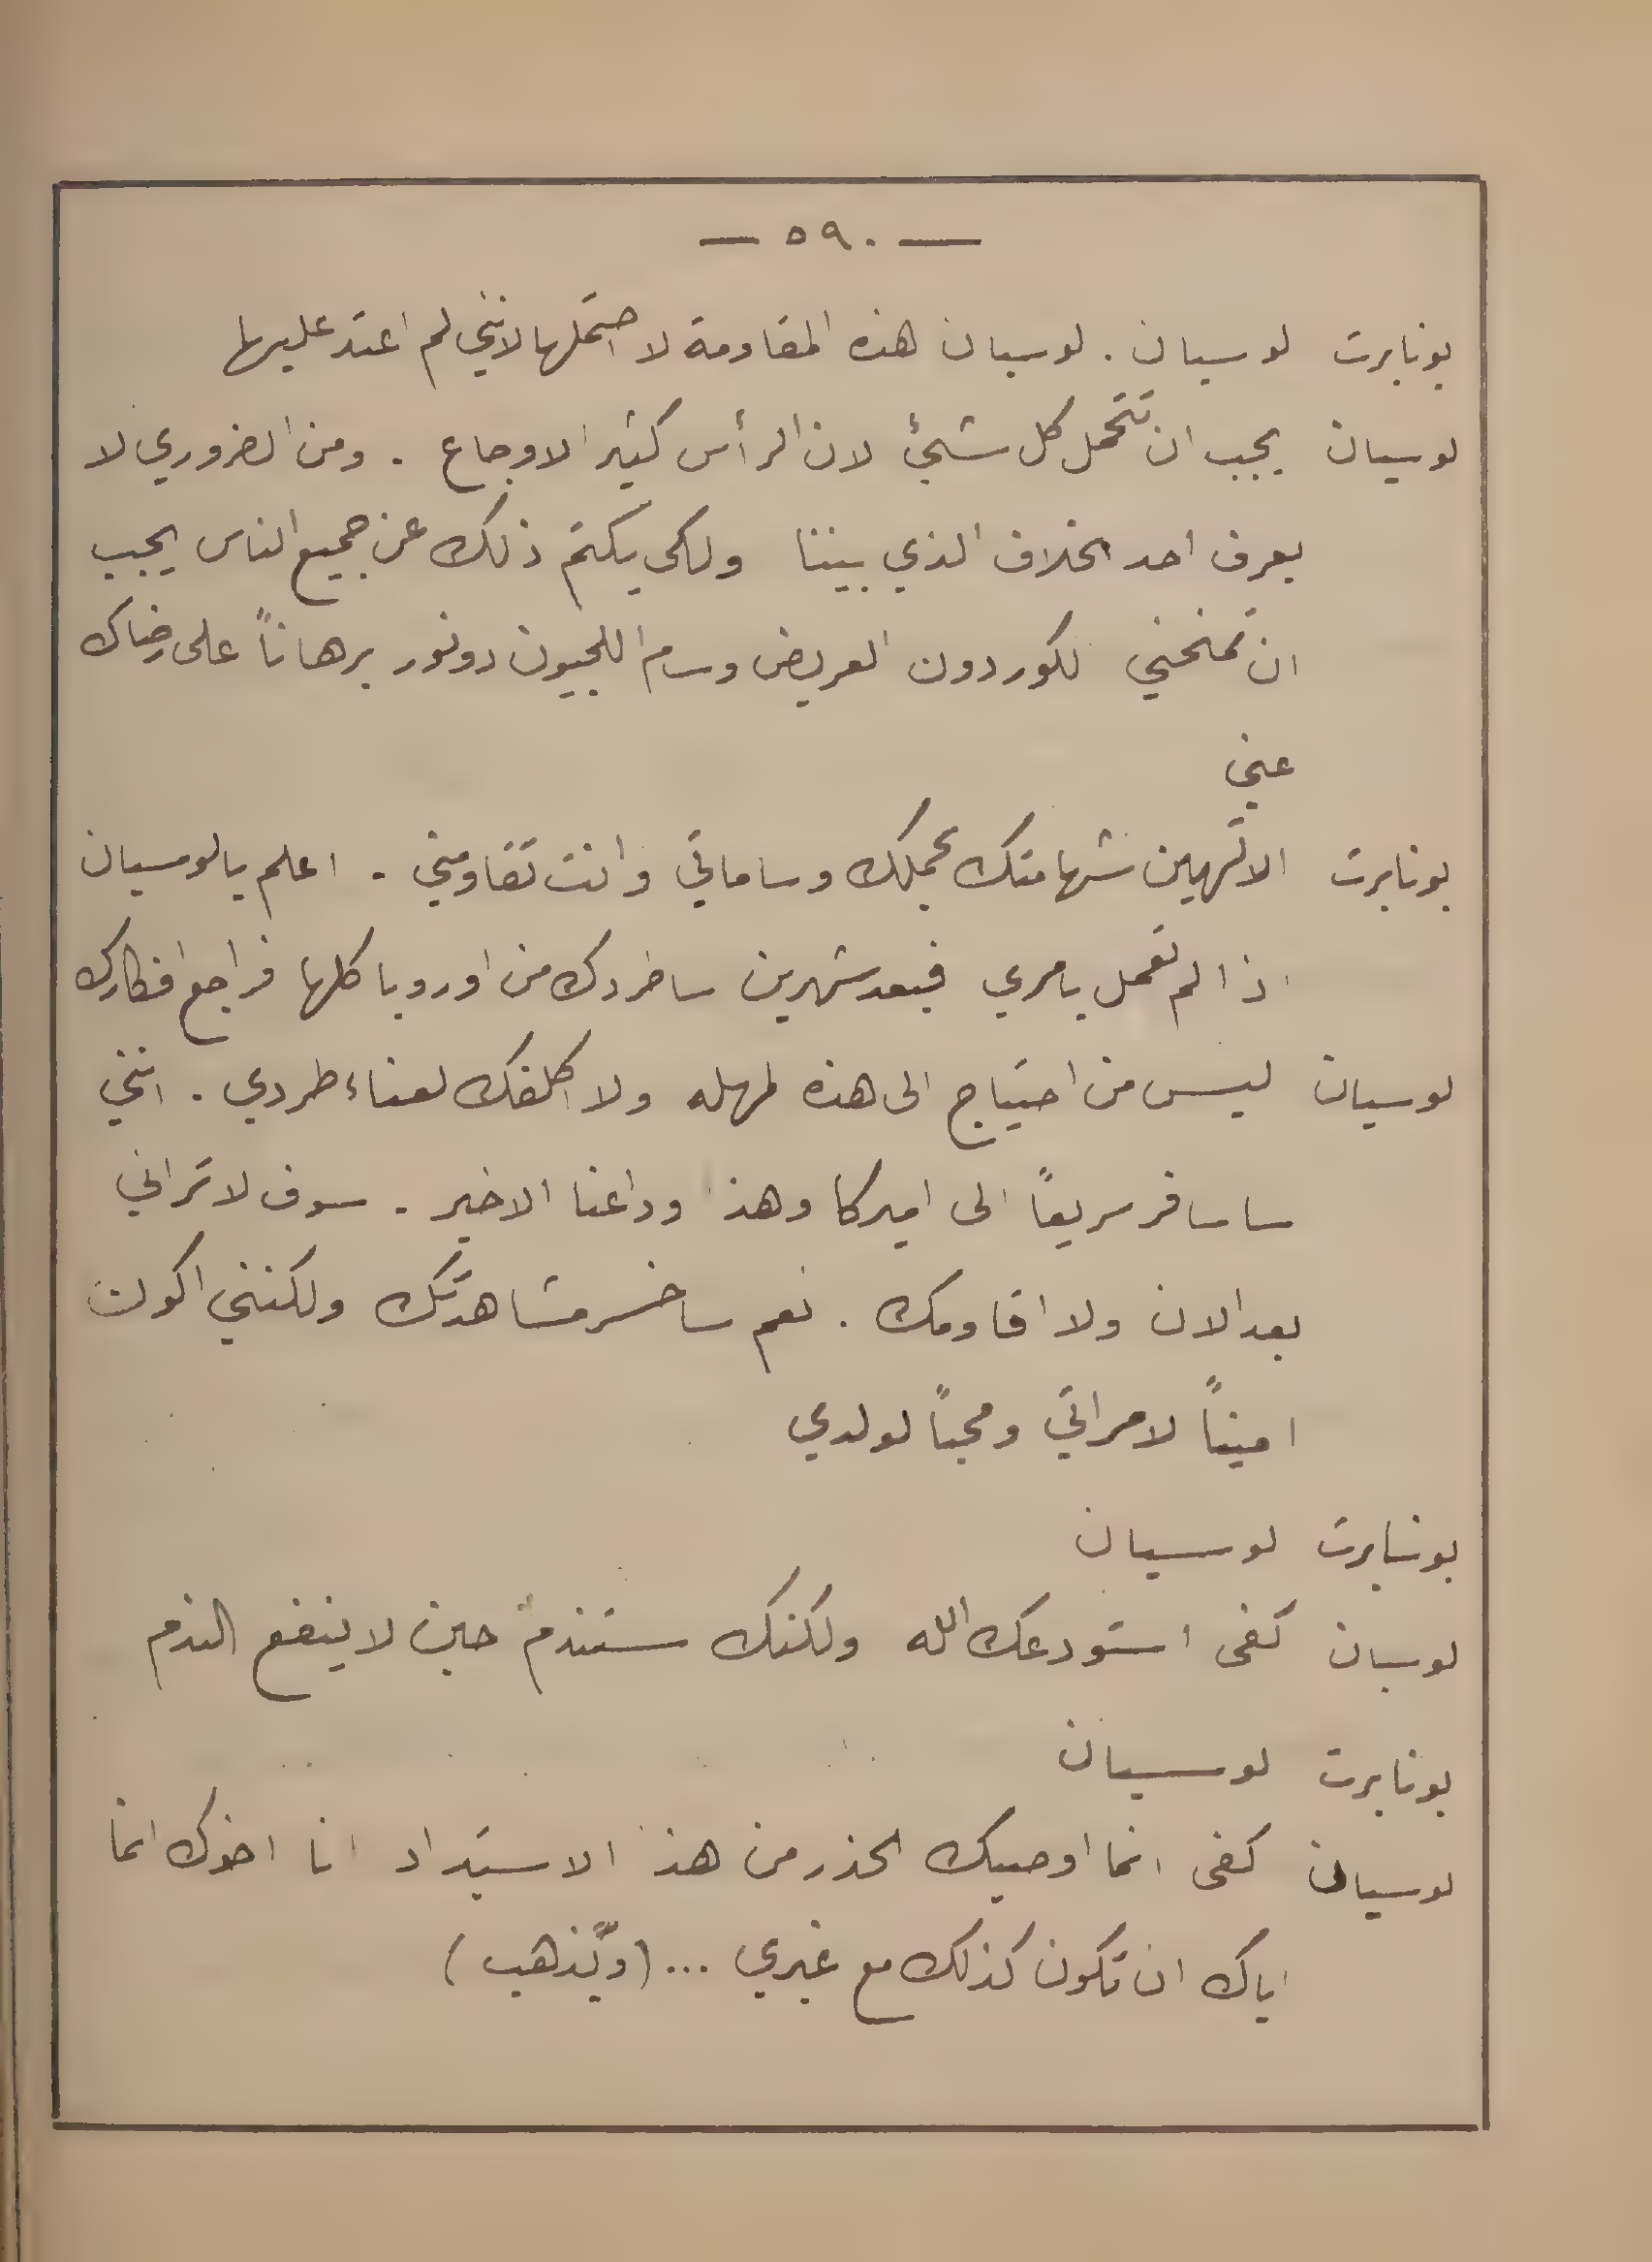 — ٥٩٠ —
بونابرت لوسيان . لوسيان هذه المقاومة لا احتملها لانني لم اعتد عليها
لوسيان يجب ان تتحمل كل شيئ لان الرأس كثير الاوجاع . ومن الضروري لا
يعرف احد الخلاف الذي بيننا ولكى يكتم ذلك عن جميع الناس يجب
ان تمنحني الكوردون العريض وسام الليجيون دونور برهاناً على رضاك
عني
بونابرت الا تهين شهامتك بحملك وساماتي وانت تقاومني . اعلم يا لوسيان
اذا لم تعمل بامري فبعد شهرين ساطردك من اوروبا كلها فراجع افكارك
لوسيان ليس من احتياج الى هذه المهله ولا اكلفك لعناء طردي . انني
ساسافر سريعاً الى اميركا وهذا وداعنا الاخير . سوف لا تراني
بعد الان ولا اقاومك . نعم ساخسر مشاهدتك ولكنني اكون
اميناً لامراتي ومحباً لولدي
بونابرت لوسيان
لوسيان كفى استودعك الله ولكنك ستندم حين لا ينفع الندم
بونابرت لوسيان
لوسيان كفى انما اوصيك الحذر من هذا الاستبداد انا اخوك انما
اياك ان تكون كذلك مع غيري ... (ويذهب)